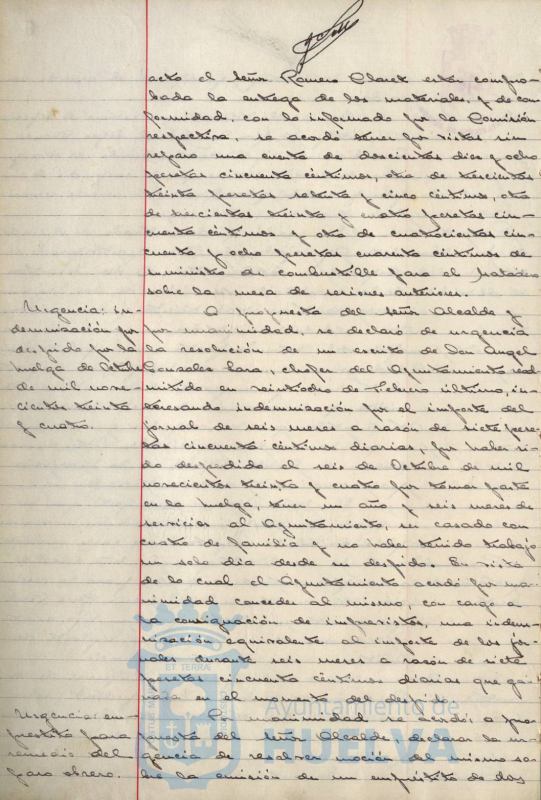 acto el Señor Romero Claret están compro-
bada la entrega de los materiales, y de con-
formidad, con lo informado por la Comisión
respectiva, se acordó tener por vistas sin
reparo una cuenta de doscientas diez y ocho
pesetas cincuenta céntimos, otra de trescientas
treinta pesetas setenta y cinco céntimos, otra
de trescientas treinta y cuatro pesetas cin-
cuenta céntimos y otra de cuatrocientas cin-
cuenta y ocho pesetas cuarenta céntimos de
suministro de combustible para el Matadero
sobre la mesa de sesiones anteriores.
Urgencia: in-
demnización por
despido por la
huelga de Octubre
de mil nove-
cientos treinta
y cuatro.
A propuesta del Señor Alcalde y
por unanimidad, se declaró de urgencia
la resolución de un escrito de Don Angel
Gonzalez Lara, chofer del Ayuntamiento read-
mitido en veintiocho de Febrero último, in-
teresando indemnización por el importe del
jornal de seis meses a razón de siete pese-
tas cincuenta céntimos diarias, por haber si-
do despedido el seis de Octubre de mil
novecientos treinta y cuatro por tomar parte
en la huelga, tener un año y seis meses de
servicios al Ayuntamiento, ser casado con
cuatro de familia y no haber tenido trabajo
un solo dia desde su despido. En vista
de lo cual el Ayuntamiento acordó por una-
nimidad conceder al mismo, con cargo a
la consignación de imprevistos, una indem-
nización equivalente al importe de los jor-
nales durante seis meses a razón de siete
pesetas cincuenta céntimos diarias que ga-
naba en el momento del despido.
Urgencia: em-
prestito para
remedio del
paro obrero.
Por unanimidad se acordó a pro-
puesta del Señor Alcalde declarar la ur-
gencia de resolver moción del mismo so-
bre la emisión de un empréstito de dos
ET TERRÆ
Ayuntamiento de
HUELVA